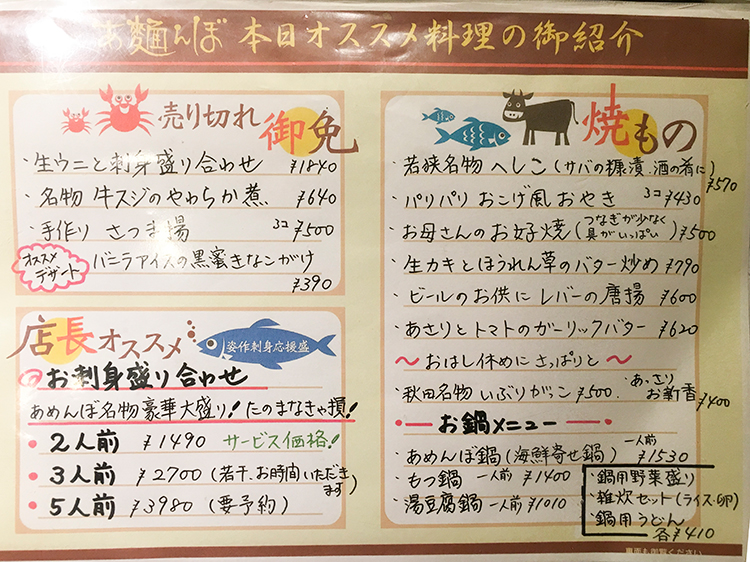 あ麺んぼ 本日オススメ料理の御紹介
売り切れ御免
・生ウニと刺身盛り合わせ ¥1840
・名物 牛スジのやわらか煮 ¥640
・手作り さつま揚 3コ ¥500
オススメデザート バニラアイスの黒蜜きなこがけ
¥390
店長オススメ
姿作刺身応援盛
お刺身盛り合わせ
あめんぼ名物豪華大盛り!たのまなきゃ損!
・2人前 ¥1490 サービス価格!
・3人前 ¥2700(若干、お時間いただきます)
・5人前 ¥3980(要予約)
焼もの
・若狭名物 へしこ(サバの糠漬、酒の肴に) ¥570
・パリパリ おこげ風 おやき 3コ ¥430
・お母さんのお好焼(つなぎが少なく具がいっぱい) ¥500
・生カキとほうれん草のバター炒め ¥790
・ビールのお供に レバーの唐揚 ¥600
・あさりとトマトのガーリックバター ¥620
〜おはし休めにさっぱりと〜
・秋田名物 いぶりがっこ ¥500 ・あっさりお新香 ¥400
お鍋メニュー
・あめんぼ鍋(海鮮寄せ鍋) 一人前 ¥1530
・もつ鍋 一人前 ¥1400
・湯豆腐鍋 一人前 ¥1010
・鍋用野菜盛り
・雑炊セット(ライス・卵)
・鍋用うどん
各¥410
裏面も御覧ください